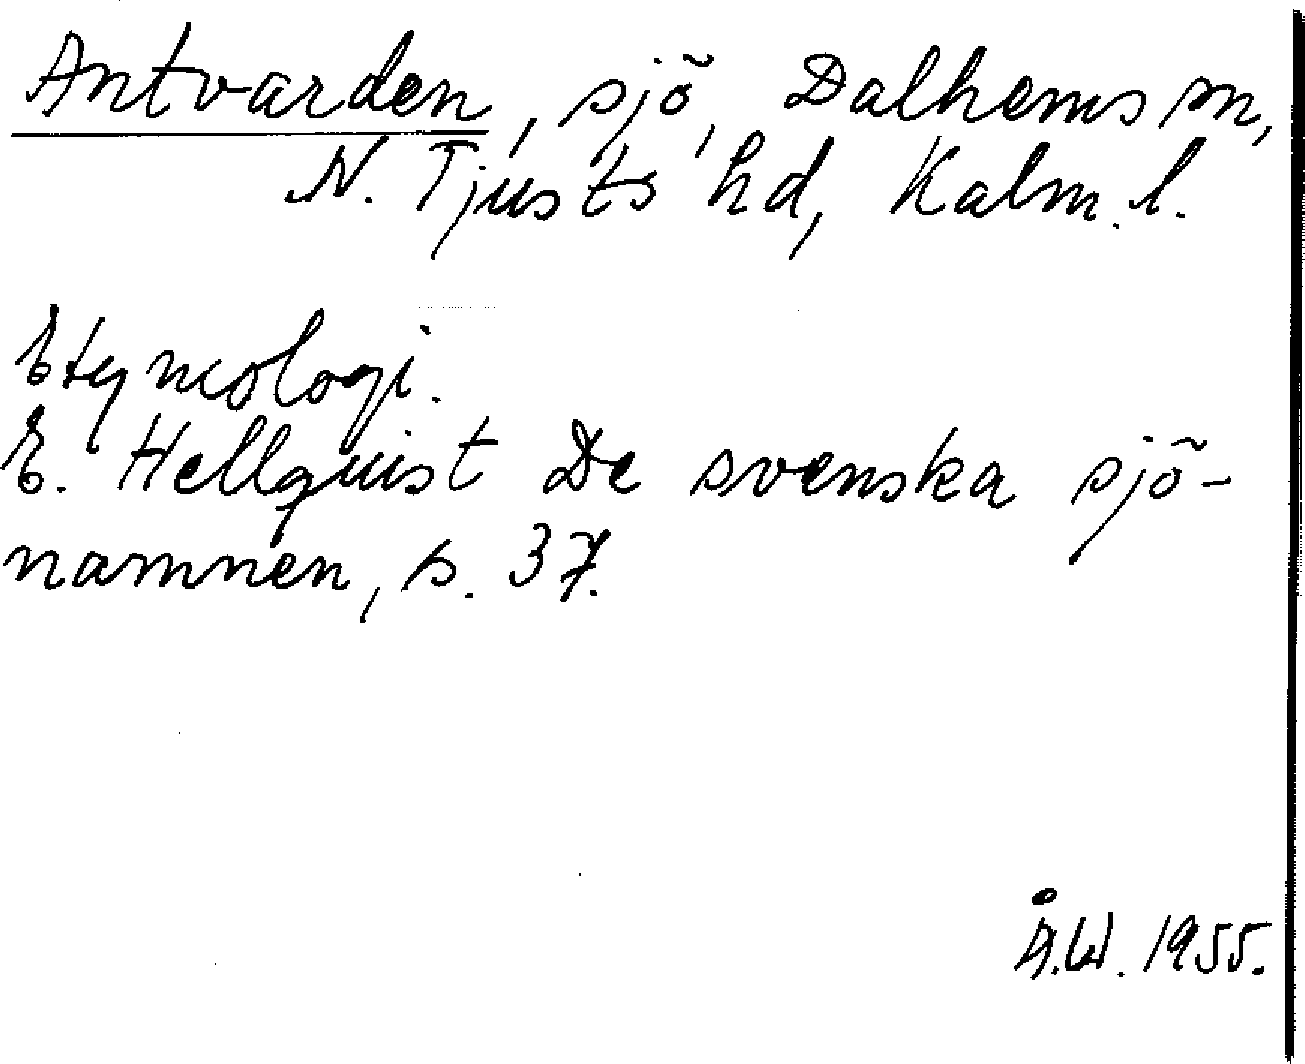 Antvarden, sjö, Dalhems sn,
N. Tjusts hd, Kalm. l.
Etymologi.
E. Hellquist De svenska sjö-
namnen, s. 37.
Å.W. 1955.